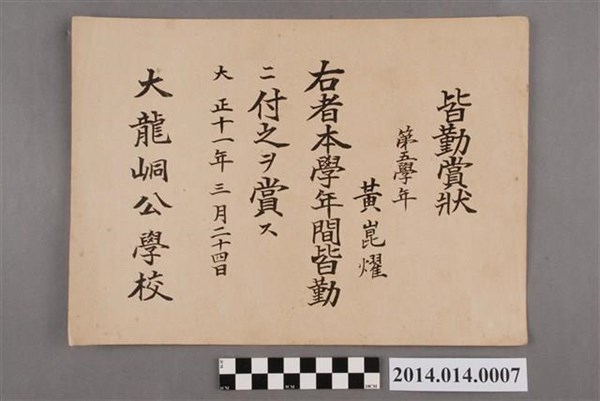 皆勤賞狀
第五學年
黃崑燿
右者本學年間皆勤
ニ付之ヲ賞ス
大正十一年三月二十四日
大龍峒公學校
2014.014.0007